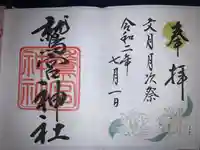 奉拝
文月月次祭
令和二年
七月一日
鷲宮神社